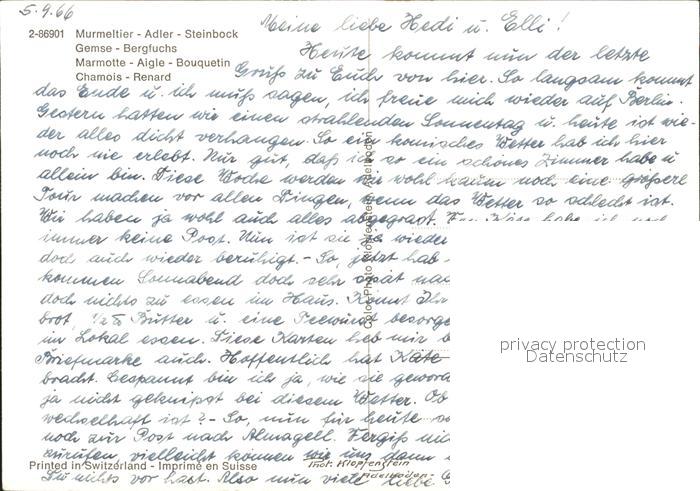 5.9.66
Meine liebe Hedi u. Elli!
2-86901 Murmeltier - Adler - Steinbock
Gemse - Bergfuchs
Marmotte - Aigle - Bouquetin
Chamois - Renard
Heute kommt nun der letzte
Gruß zu Euch von hier. So langsam kommt
das Ende u. ich muß sagen, ich freue mich wieder auf Berlin.
Gestern hatten wir einen strahlenden Sonnentag u. heute ist wie-
der alles dicht verhangen. So ein komisches Wetter hab ich hier
noch nie erlebt. Nur gut, daß ich so ein schönes Zimmer habe u
allein bin. Diese Woche werden wir wohl kaum noch eine größere
Tour machen vor allen Dingen, wenn das Wetter so schlecht ist.
Wir haben ja wohl auch alles abgegrast. Von Käte habe ich noch
immer keine Post. Nun ist sie ja wieder
doch auch wieder beruhigt. - So, jetzt hab
kommen Sonnabend doch sehr spät nac
doch nichts zu essen im Haus. Könnt Ihr
brot, 1/2 Butter u. eine Teewurst besorge
im Lokal essen. Diese Karten heb mir b
Briefmarke auch. Hoffentlich hat Käte
bracht. Gespannt bin ich ja, wie sie geword
ja nicht geknipst bei diesem Wetter. Ob
wechselhaft ist? - So, nun für heute
noch zur Post nach Almagell. Vergiß nic
zurufen, vielleicht können wir uns dann
Du nichts vor hast. Also nun viele liebe
Color Photo Klopfenstein Adelboden
privacy protection
Datenschutz
Printed in Switzerland - Imprimé en Suisse
Phot. Klopfenstein
Adelboden